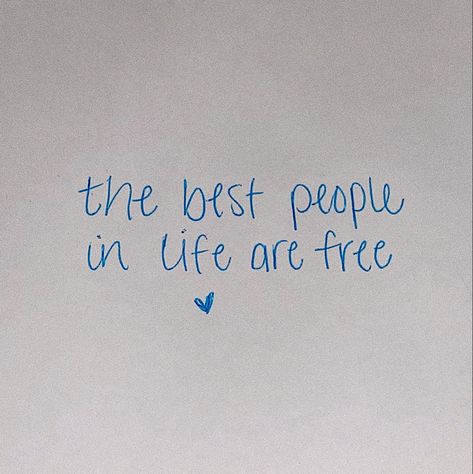 the best people
in life are free